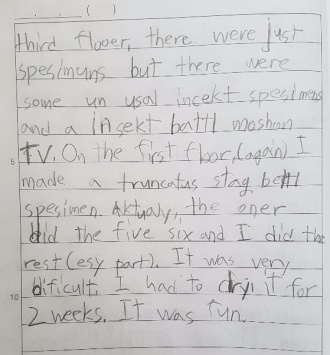 ( )
third flooer, there were just
spesimuns but there were
some un usal incekt spesimens
and a insekt battl moshon
5 TV. On the first floor, (again) I
made a truncatus stag betl
spesimen. Aktualy, the oner
did the five six and I did the
rest (esy part). It was very
10 dificult. I had to dry it for
2 weeks. It was fun.